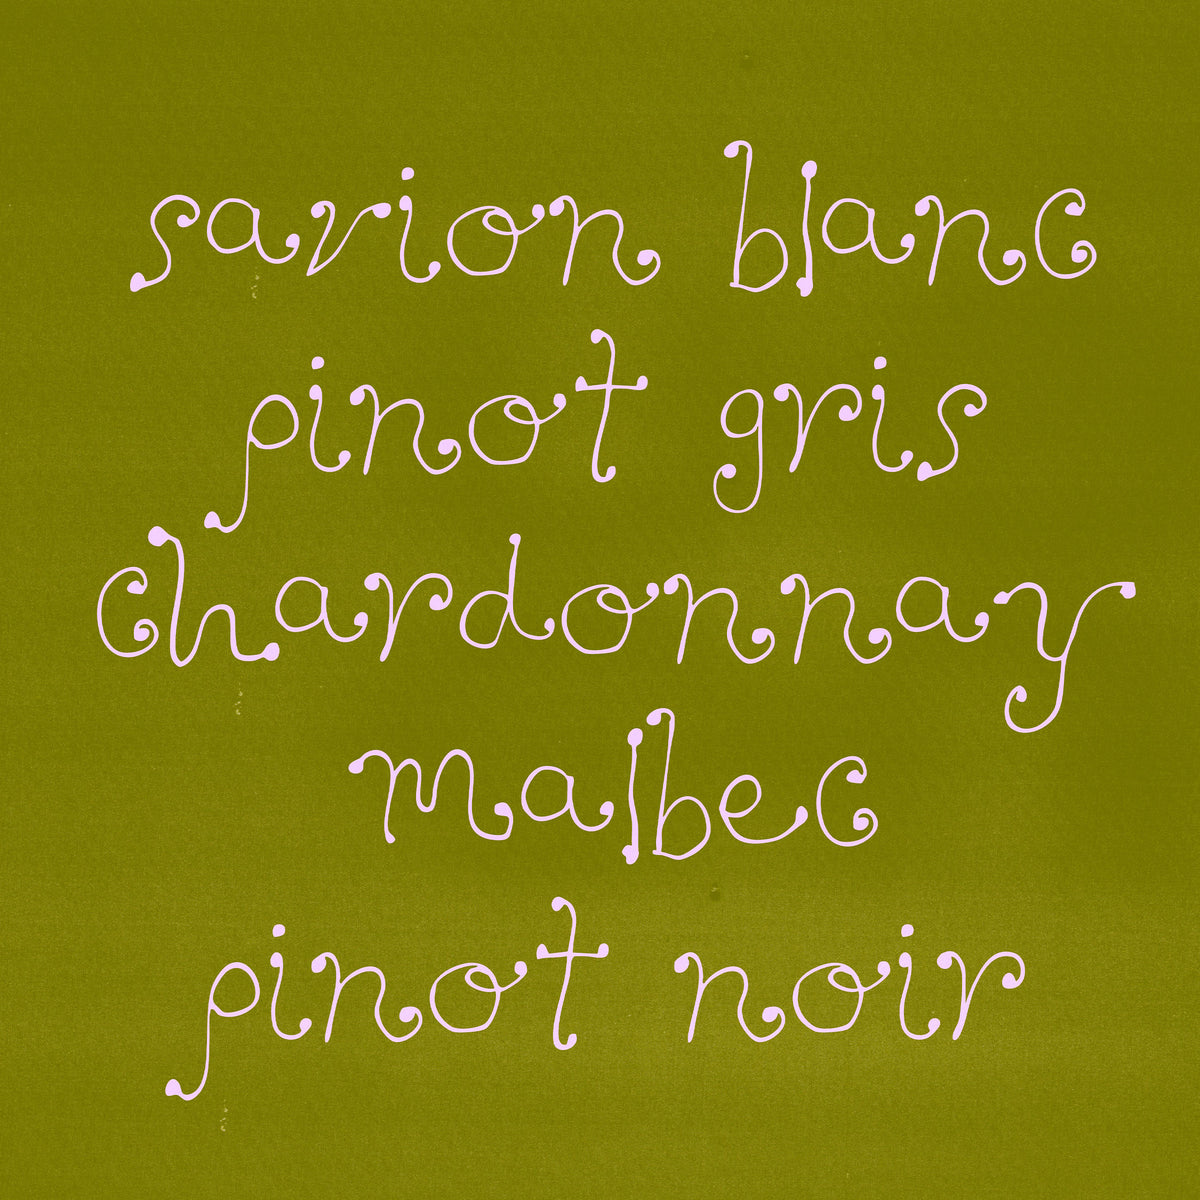 savion blanc
pinot gris
chardonnay
malbec
pinot noir